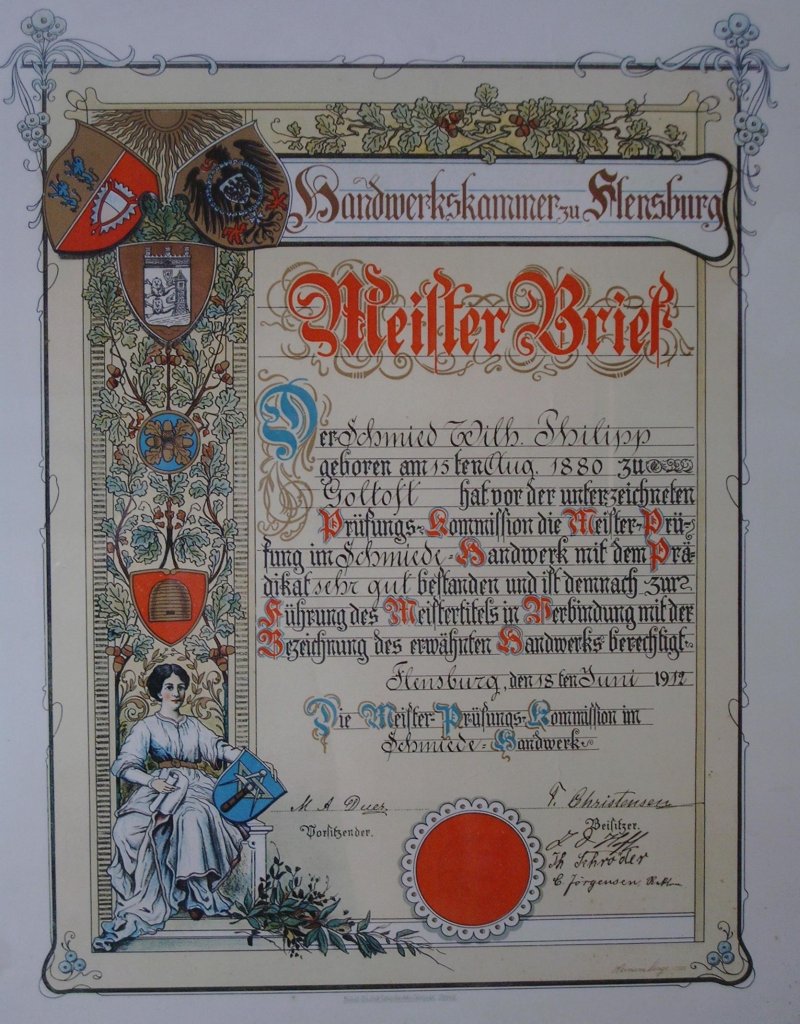 Handwerkskammer zu Flensburg
Meister Brief
Der Schmied Wilh. Philipp
geboren am 15ten Aug. 1880 zu
Goltoft hat vor der unterzeichneten
Prüfungs-Kommission die Meister-Prü-
fung im Schmiede-Handwerk mit dem Prä-
dikat sehr gut bestanden und ist demnach zur
Führung des Meistertitels in Verbindung mit der
Bezeichnung des erwähnten Handwerks berechtigt.
Flensburg, den 18ten Juni 1912
Die Meister-Prüfungs-Kommission im
Schmiede-Handwerk
M A Duer
Vorsitzender.
T. Christensen
Beisitzer.
Th Schröder
C. Jörgensen,